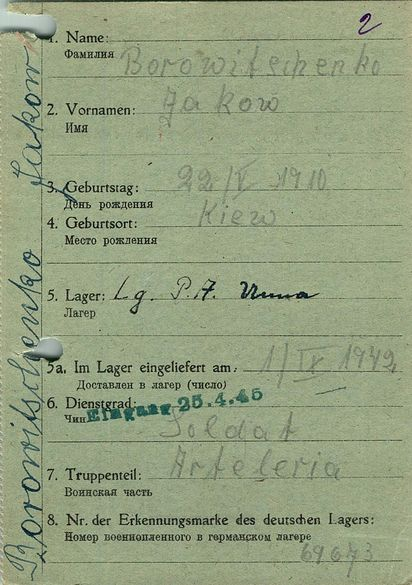 2
1. Name: Borowitschenko
Фамилия
2. Vornamen: Jakow
Имя
3. Geburtstag: 22/V 1910
День рождения
4. Geburtsort: Kiew
Место рождения
5. Lager: Lg. P.A. Unna
Лагер
5a. Im Lager eingeliefert am: 1/IX 1942
Доставлен в лагер (число)
6. Dienstgrad: Soldat
Чин
Eingang 25.4.45
7. Truppenteil: Arteleria
Воинская часть
8. Nr. der Erkennungsmarke des deutschen Lagers:
Номер военнопленного в германском лагере
69673
Borowitschenko Jakow